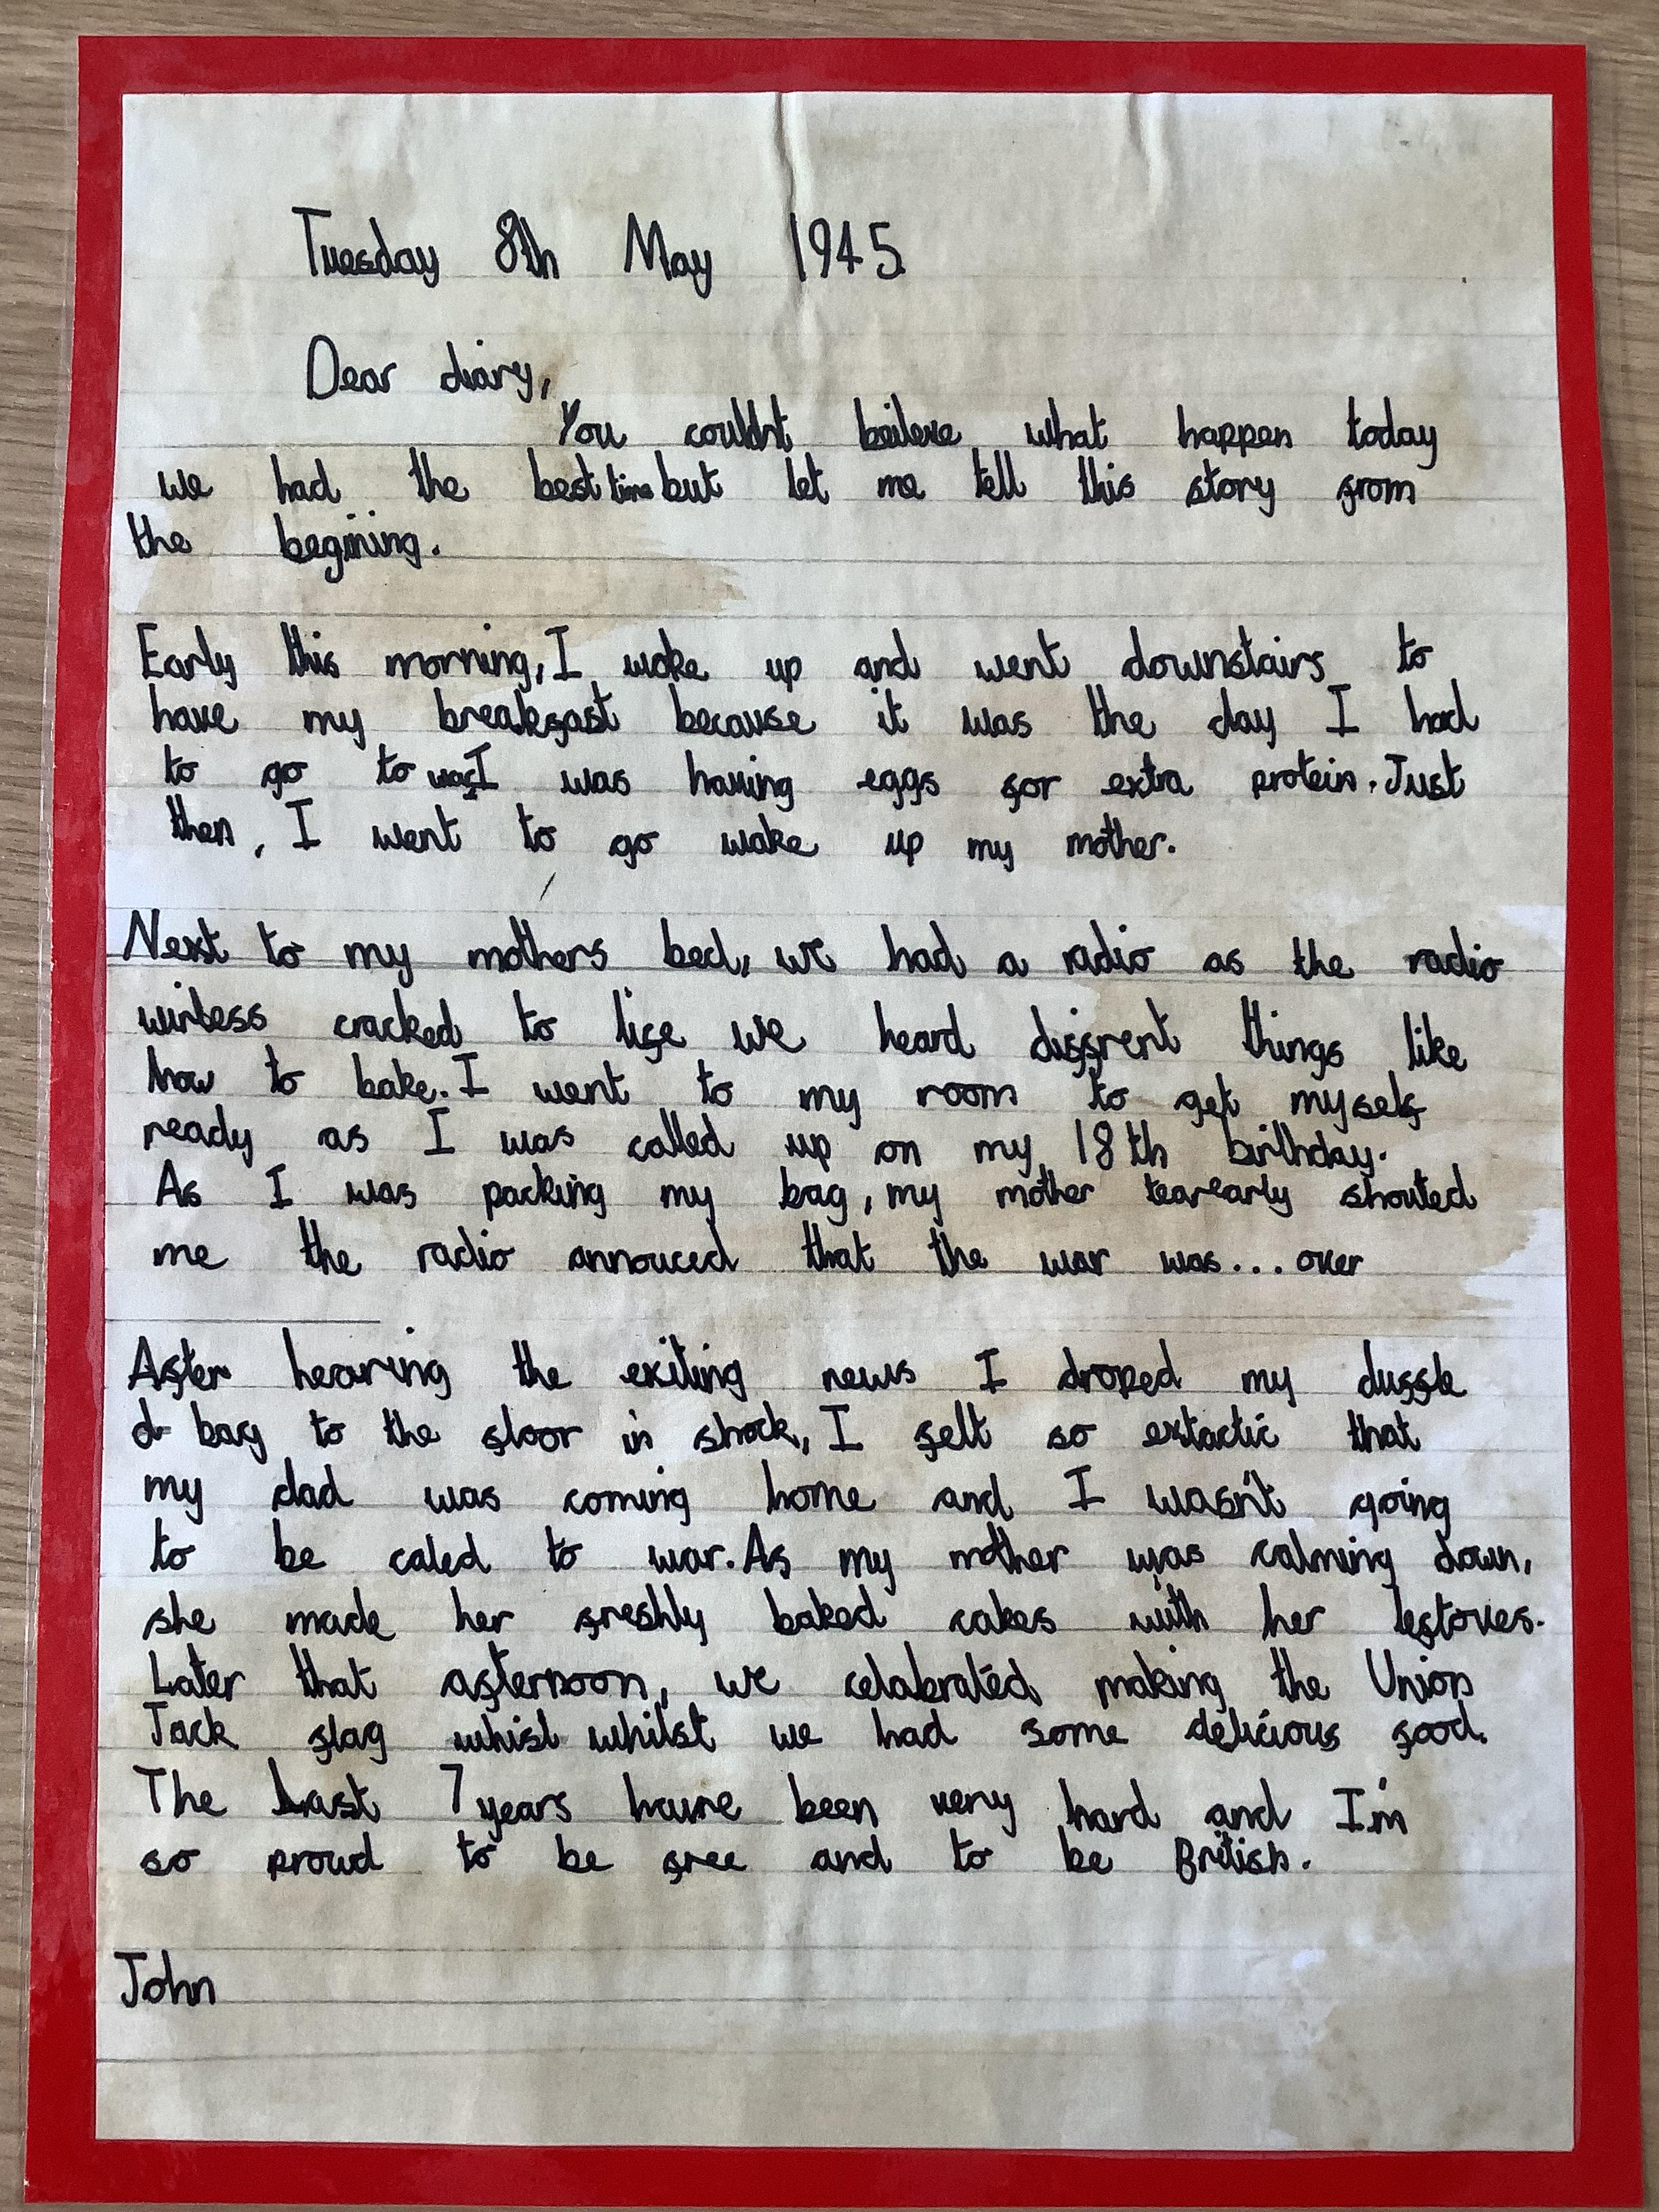 Tuesday 8th May 1945
Dear diary,
You couldn't beileve what happen today
we had the best time but let me tell this story from
the begining.
Early this morning, I woke up and went downstairs to
have my breakfast because it was the day I had
to go to war I was having eggs for extra protein. Just
then, I went to go wake up my mother.
Next to my mothers bed, we had a radio as the radio
wirless cracked to life we heard diffrent things like
how to bake. I went to my room to get myself
ready as I was called up on my 18th birthday.
As I was packing my bag, my mother tearearly shouted
me the radio annouced that the war was... over
After hearing the exiting news I droped my duffle
d bag to the floor in shock, I felt so extactic that
my dad was coming home and I wasn't going
to be caled to war. As my mother was calming down,
she made her freshly baked cakes with her leftoves.
Later that afternoon, we celabrated making the Union
Jack flag whisl whilst we had some delicious food.
The last 7 years have been very hard and I'm
so proud to be free and to be British.
John